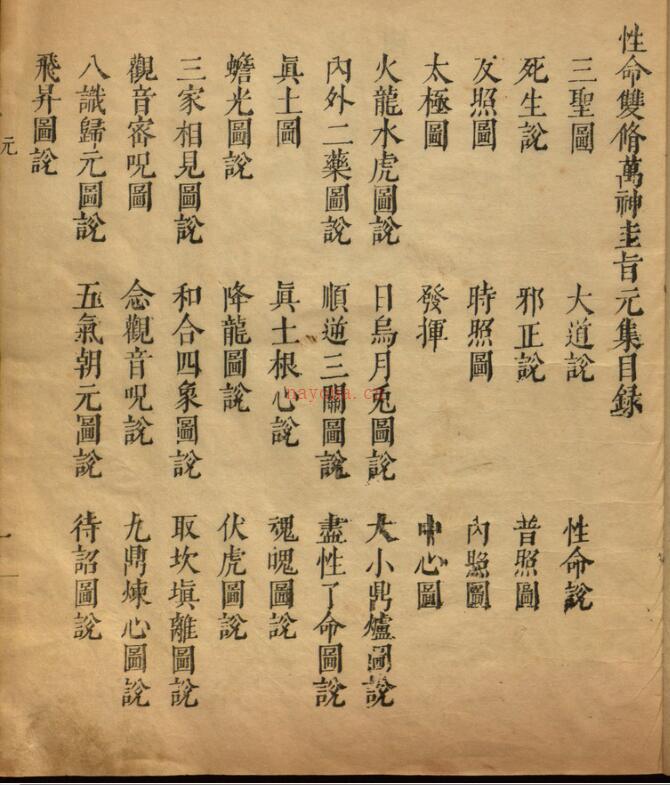 性命雙脩萬神圭旨元集目録
三聖圖　大道說　性命說
死生說　邪正說　普照圖
反照圖　時照圖　內照圖
太極圖　發揮　中心圖
火龍水虎圖說　日烏月兎圖說　大小鼎爐圖說
內外二藥圖說　順逆三關圖說　盡性了命圖說
眞土圖　眞土根心說　魂魄圖說
蟾光圖說　降龍圖說　伏虎圖說
三家相見圖說　和合四象圖說　取坎塡離圖說
觀音密呪圖　念觀音呪說　九鼎煉心圖說
八識歸元圖說　五氣朝元圖說　待詔圖說
飛昇圖說
元
一